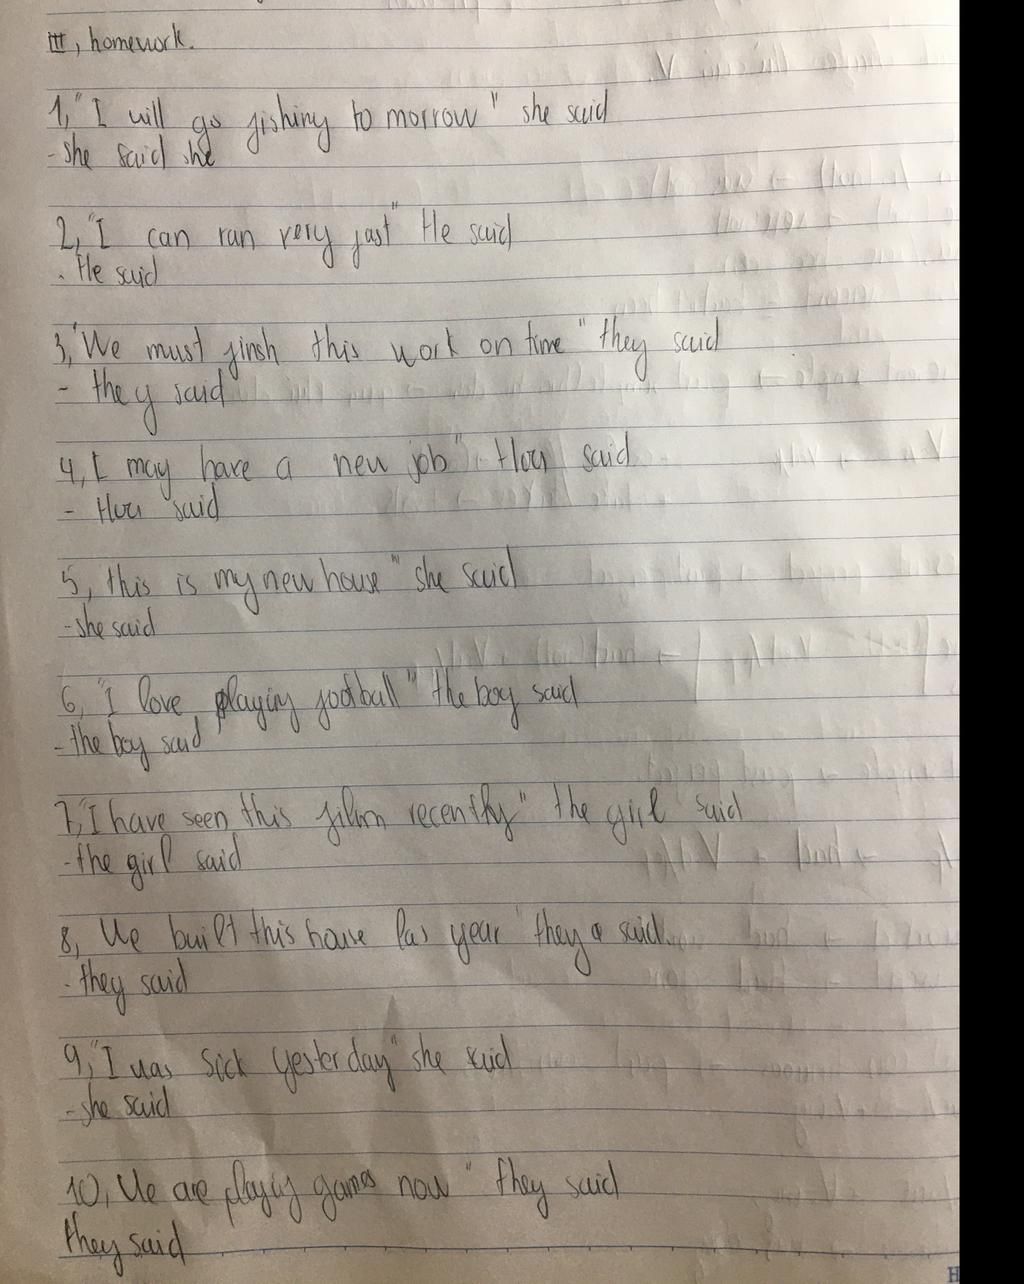 III, homework.
1, "I will go fishing to morrow" she said
- she said she
2, "I can ran very fast" He said
- He said
3, "We must finsh this work on time" they said
- they said
4, I may have a new job" Hoa said
- Hoa said
5, this is my new house" she said
- she said
6, "I love playing football" the boy said
- the boy said
7, "I have seen this filim recently" the girl said
- the girl said
8, We built this house las year" they said.
- they said
9, "I was sick yesterday" she said
- she said
10, We are playig games now" they said
they said
H